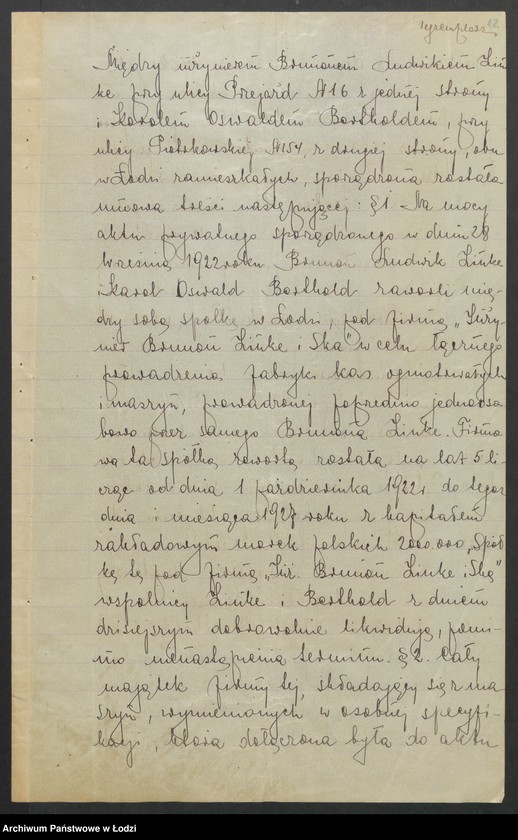 egzemplarz 12
Między inżynierem Brunonem Ludwikiem Lin
ke przy ulicy Przejazd № 16 z jednej strony
i Karolem Oswaldem Bartholdem, przy
ulicy Piotrkowskiej, № 154, z drugiej strony, obu
w Łodzi zamieszkałych, sporządzona została
umowa treści następującej: § 1. Na mocy
aktu prywatnego sporządzonego w dniu 28
września 1922 roku Brunon Ludwik Linke
i Karol Oswald Barthold zawarli mię-
dzy sobą spółkę w Łodzi, pod firmą „Inży-
nier Brunon Linke i Ska" w celu łącznego
prowadzenia fabryki kas ogniotrwałych
i maszyn, prowadzonej poprzednio jednooso
bowo przez samego Brunona Linke. Firmo
wa ta spółka zawartą została na lat 5 li-
cząc od dnia 1 października 1922 r. do tegoż
dnia i miesiąca 1927 roku z kapitałem
zakładowym marek polskich 2000.000 „Spół
kę tę pod firmą „Inż. Brunon Linke i Ska"
wspólnicy Linke i Barthold z dniem
dzisiejszym dobrowolnie likwidują, pomi-
mo nienastąpienia terminu. § 2. Cały
majątek firmy tej, składający się z ma
szyn, wymienionych w osobnej specyfi-
kacji, która dołączona była do aktu
Archiwum Państwowe w Łodzi